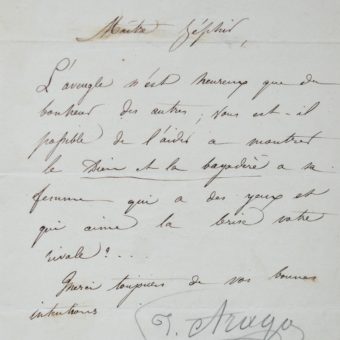 Maître Zéphir,
L'aveugle n'est heureux que du
bonheur des autres; vous est-il
possible de l'aider a montrer
le Dieu et la bayadère a sa
femme qui a des yeux et
qui aime la brise votre
rivale?...
Merci toujours de vos bonnes
intentions
J. Arago